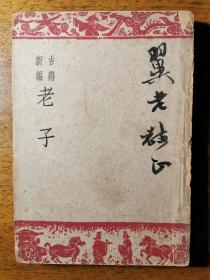 翼老教正
古籍
新編
老子